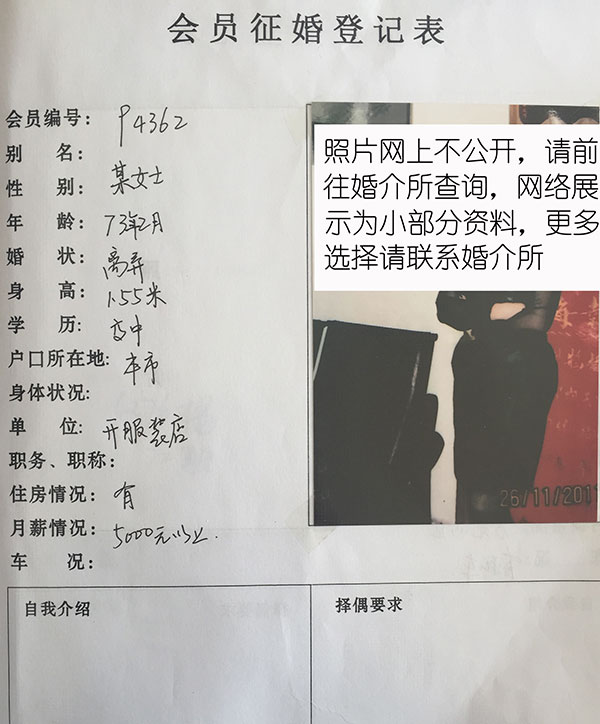 会员征婚登记表
会员编号: P4362
别 名:
性 别: 某女士
年 龄: 73年2月
婚 状: 离异
身 高: 1.55米
学 历: 高中
户口所在地: 本市
身体状况:
单 位: 开服装店
职务、职称:
住房情况: 有
月薪情况: 5000元以上.
车 况:
照片网上不公开，请前
往婚介所查询，网络展
示为小部分资料，更多
选择请联系婚介所
26/11/2011
自我介绍
择偶要求